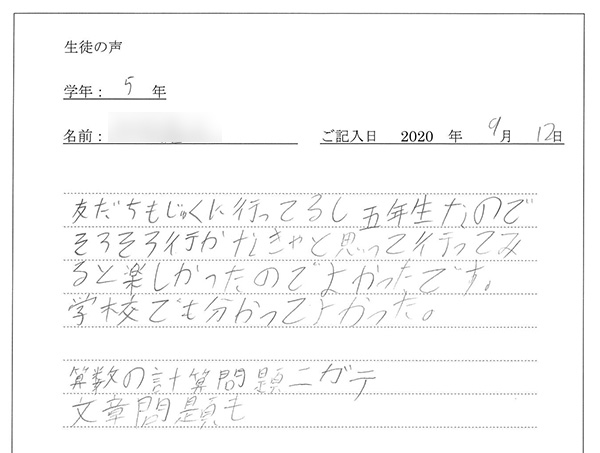 生徒の声
学年： 5 年
名前：
ご記入日 2020 年 9月 12日
友だちもじゅくに行ってるし 五年生なので
そろそろ行かなきゃと思って行ってみ
ると楽しかったのでよかったです。
学校でも分かってよかった。
算数の計算問題ニガテ
文章問題も